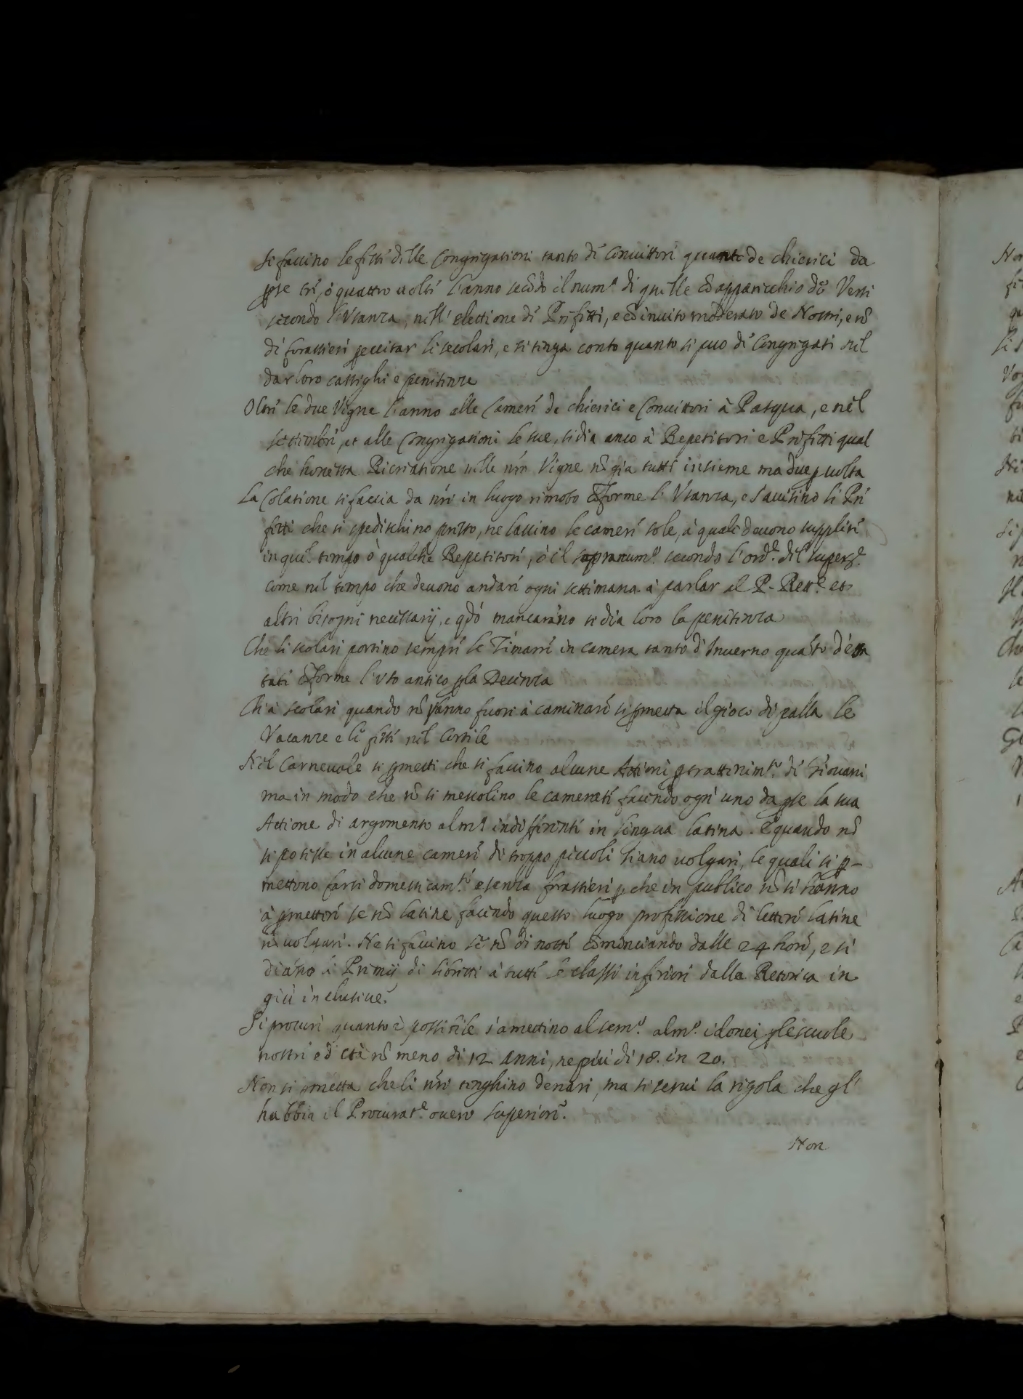 Si faccino le feste delle Congregationi tanto di Convittori quanto de chierici da
per se tre, ò quattro volte l'anno secōdo il num.º di quelle Cō apparecchio dē Versi
secondo l'Usanza, nell'elettione di Prefetti, e cō invito moderato de Nostri, e nō
di forastieri per evitar li secolari, e si tenga conto quanto si può dē Congregati nel
dar loro castighi e penitenze
Oltre le due Vigne l'anno alle Camere de chierici e Convittori à Pasqua, e nel
settembre, et alle Congregationi le sue, si dia anco à Repetitori e Prefetti qual
che honesta Ricreatione nelle nr̄e Vigne nō già tutti insieme ma due per volta
La Colatione si faccia da nr̄i in luogo rimoto Cōforme l'Usanza, e s'avisino li Pre
fetti che si spedischino presto, ne lascino le camere sole, à quale devono supplire
in quel tempo ò qualche Repetitore, ò il sopranum.º secondo l'ord.e del super.e
come nel tempo che devono andare ogni settimana à parlar al P. Rett.e et
altri bisogni necessarij, e qdō mancaranno si dia loro la penitenza
Che li scolari portino sempre le Zimarre in camera tanto d'Inverno quāto d'esta
tati Cōforme l'uso antico per la Decenza
Che à scolari quando nō vanno fuori à caminare si permetta il gioco di palla le
Vacanze e le feste nel Cortile
Nel Carnevale si permetti che si faccino alcune Attioni per trattenim.to di Giovani
ma in modo che nō si mescolino le camerate facendo ogni uno da per se la sua
Attione di argomento alm.º indifferente in lingua latina. E quando nō
si potesse in alcune camere di troppo piccoli siano volgari, le quali si p-
mettono farsi domesticam.te e senza frastieri perche in publico nō si hanno
à permettere se nō latine facendo questo luogo professione di lettere latine
nō volgari. Ne si faccino se nō di notte Cōminciando dalle 24 hore, e si
diāno li Premij di libretti à tutte le classi inferiori dalla Retorica in
giù inclusive.
Si procuri quanto è possibile s'amettino al sem.º alm.º idonei per le scuole
nostre e d'età nō meno di 12 anni, ne più di 18 in 20.
Non si permetta che li nr̄i tenghino denari, ma si servi la regola che gl'
habbia il Procurat.e overo superiore.
Non